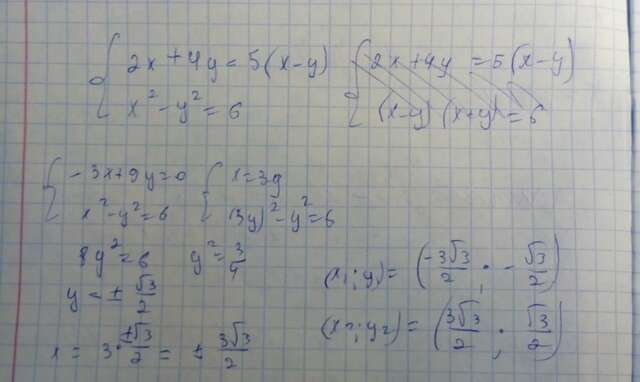 { 2x + 4y = 5(x - y)
x² - y² = 6
{ 2x + 4y = 5(x - y)
(x - y)(x + y) = 6
{ -3x + 9y = 0
x² - y² = 6
{ x = 3y
(3y)² - y² = 6
8y² = 6   y² = 3/4
y = ± √3/2
x = 3 · ±√3/2 = ± 3√3/2
(x₁; y₁) = (-3√3/2 ; -√3/2)
(x₂; y₂) = (3√3/2 ; √3/2)